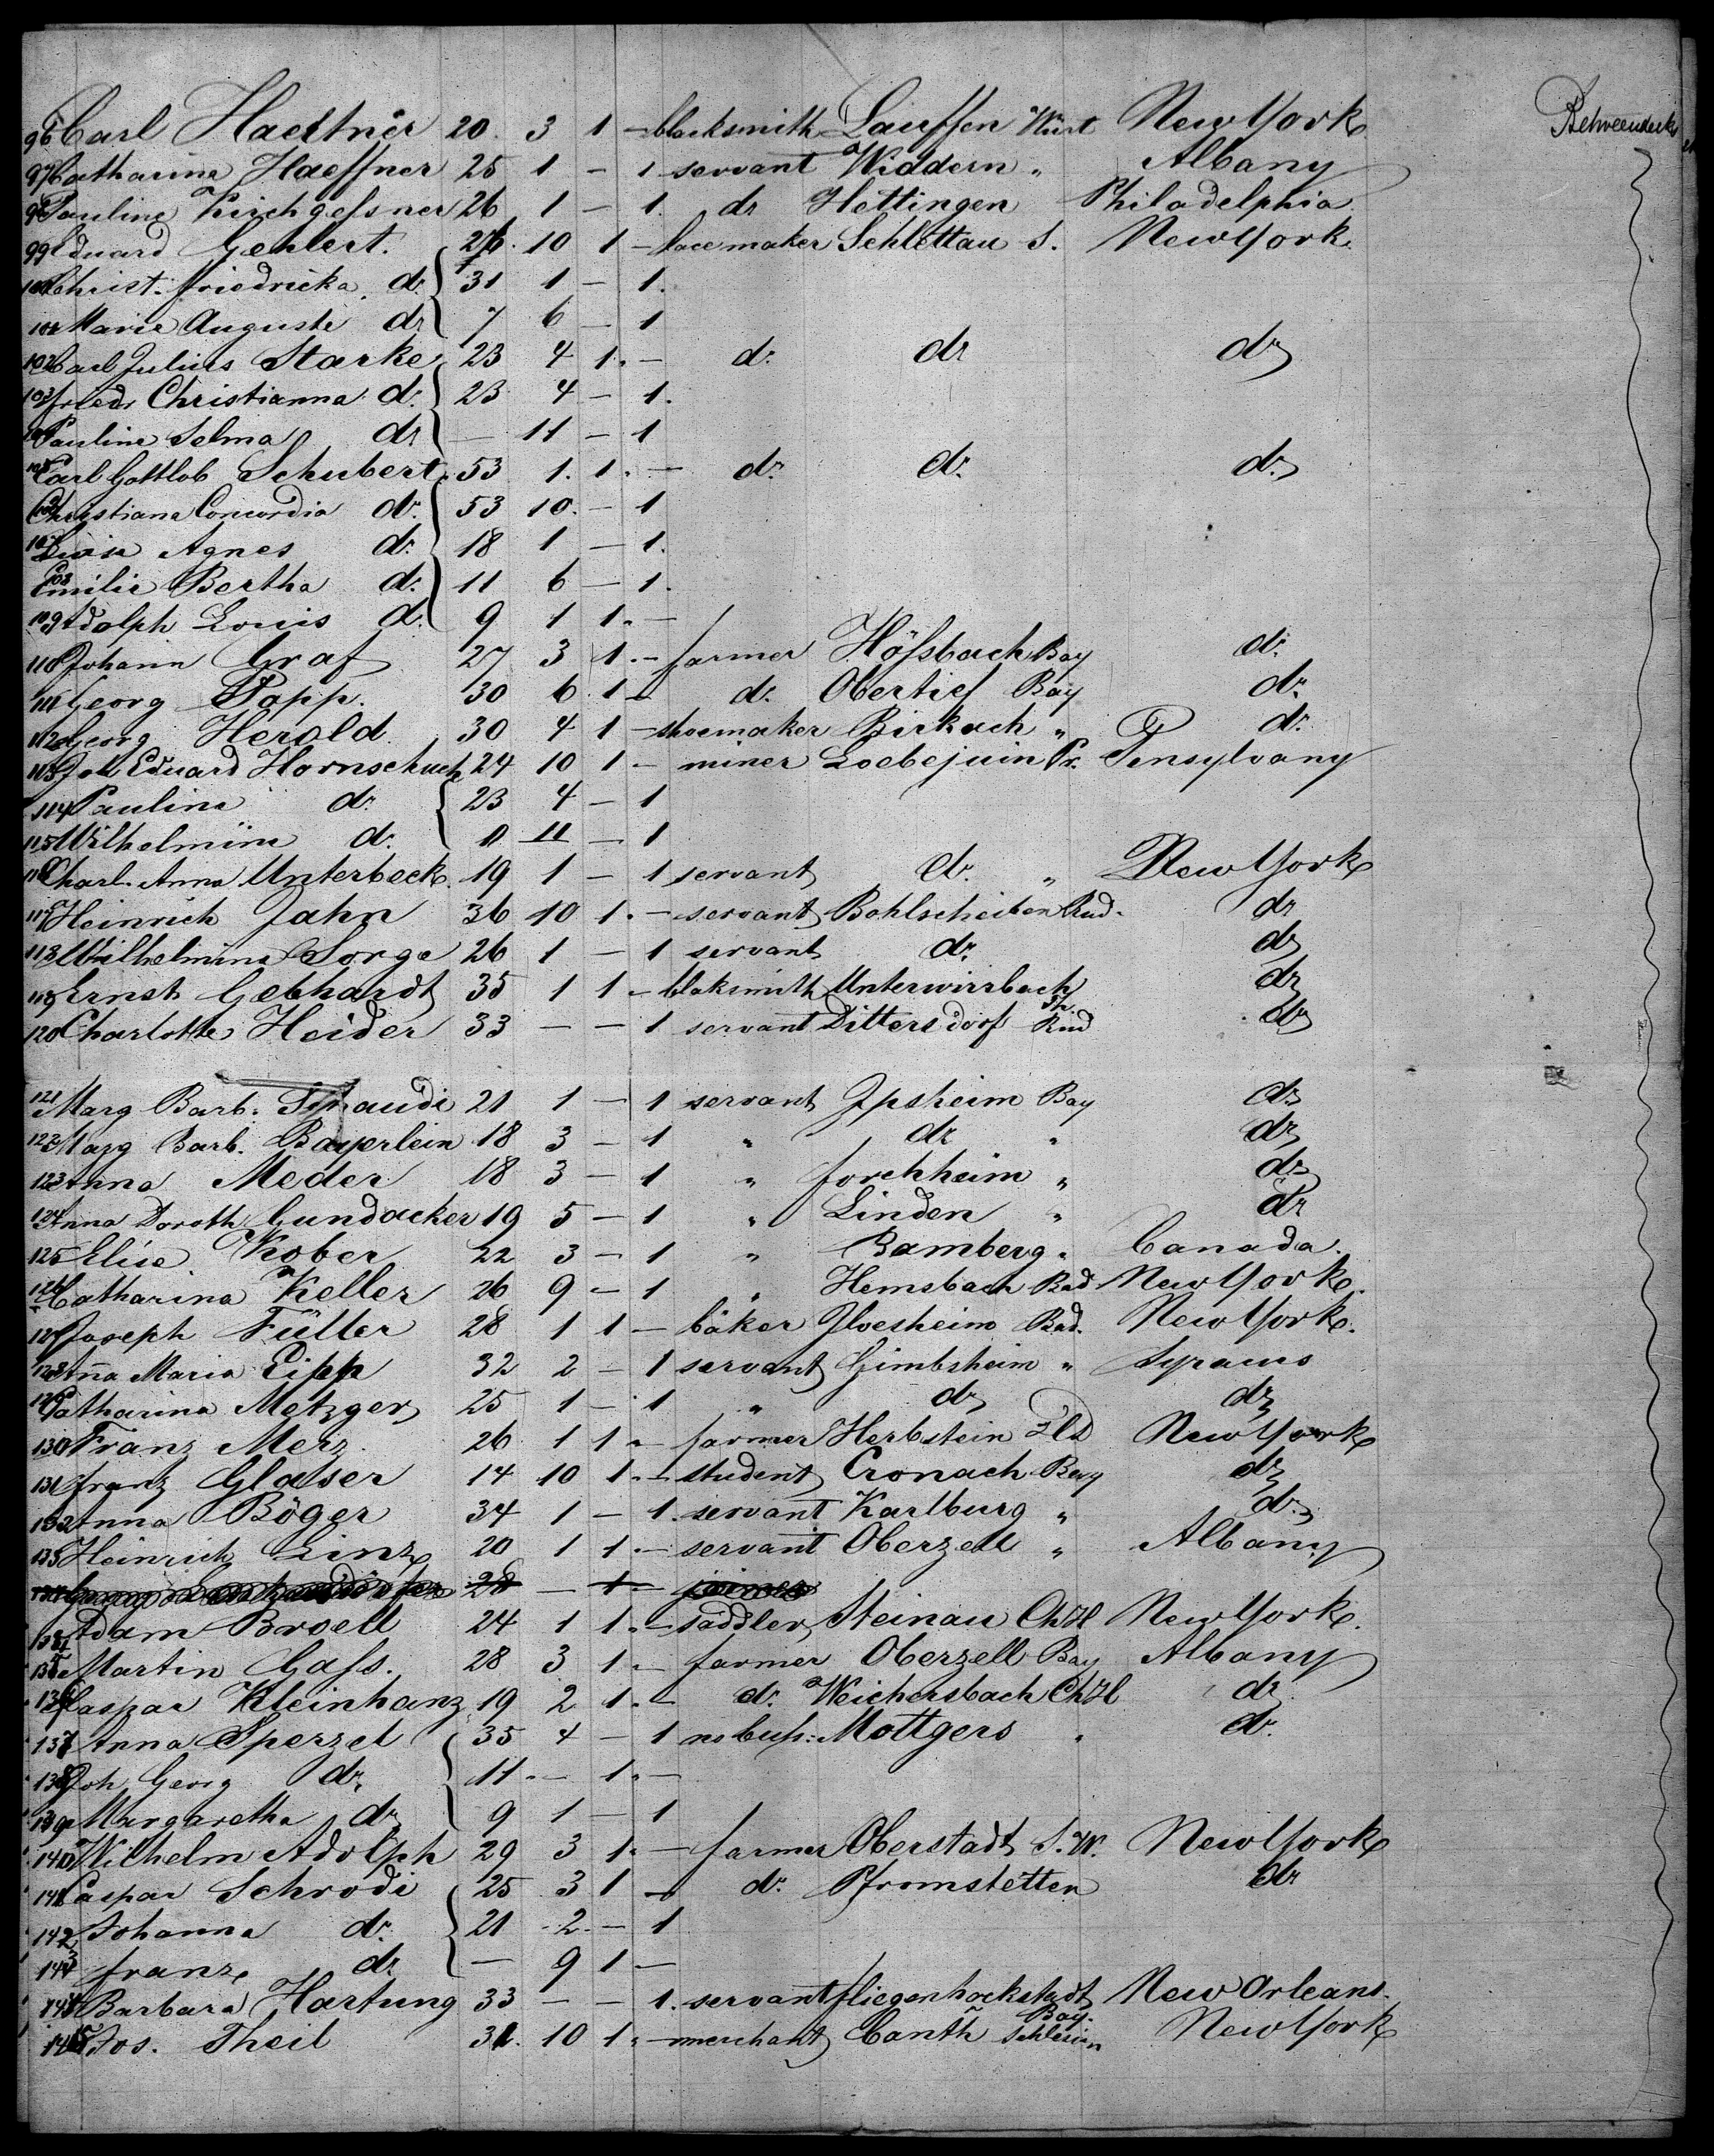 96 Carl Haettner 20 3 1 - blacksmith Lauffen Würt New York Betweendecks
97 Catharina Haeffner 25 1 - 1 servant Widdern " Albany
98 Pauline Kirchgessner 26 1 - 1. dr Hettingen Philadelphia
99 Eduard Gehlert. 26. 10 1 - lacemaker Schlettau S. New York.
100 Christ. Friedricka. dr. 31 1 - 1.
101 Marie Auguste dr 7 6 - 1
102 Carl Julius Starke 23 4 1. - dr. dr dr
103 Friedr Christianna dr. 23 4 - 1.
104 Pauline Selma dr - 11 - 1
105 Carl Gottlob Schubert 53 1. 1. - dr. dr. dr.
106 Christiana Concordia dr. 53 10. - 1
107 Agnes dr. 18 1 - 1.
108 Emilie Bertha dr. 11 6 - 1.
109 Adolph Louis d. 9 1 1. -
110 Johann Graf 27 3 1. - farmer Hössbach Bay dr.
111 Georg Popp. 30 6 1 - dr. Obertief Bay dr.
112 Georg Herold 30 4 1 - shoemaker Birkach " dr.
113 Joh Eduard Hornschuch 24 10 1 - miner Loebejuin Pr. Pensylvany
114 Pauline dr. 23 4 - 1
115 Wilhelmine dr. 11 - 1
116 Charl. Anna Unterbeck. 19 1 - 1 servant dr. " New York
117 Heinrich Jahn 36 10 1. - servant Bohlscheiben Rud. dr
118 Wilhelmina Sorge 26 1 - 1 servant dr. dr
119 Ernst Gebhardt 35 1 1 - blaksmith Unterwirrbach dr
120 Charlotte Heider 33 - - 1 servant Dittersdorf Rud dr
121 Marg Barb. 21 1 - 1 servant Ipsheim Bay dr
122 Marg Barb. Bayerlein 18 3 - 1 " dr " dr
123 Anna Meder 18 3 - 1 " forchheim " dr
124 Anna Doroth Gundacker 19 5 - 1 " Linden " dr
125 Elise Kober 22 3 - 1 " Bamberg " Canada.
126 Catharina Keller 26 9 - 1 " Hemsbach Bad New York.
127 Joseph Füller 28 1 1 - bäker Ilvesheim Bad. New York.
128 Aña Maria Eipp 32 2 - 1 servant Gimbsheim " Syracus
129 Catharina Metzger 25 1 - 1 " dr dr
130 Franz Merz 26 1 1 - farmer Herbstein New York
131 Franz Glaser 14 10 1. - student Cronach Bay dr
132 Anna Böger 34 1 - 1. servant Karlburg " dr.
133 Heinrich Linz 20 1 1. - servant Oberzell " Albany
28 - 1 - joiner
Adam Broell 24 1 1. - saddler Steinau ChHl New York.
135 Martin Gass. 28 3 1. - farmer Oberzell Bay Albany
136 Caspar Kleinhanz 19 2 1. - dr. Weichersbach ChHl dr
137 Anna Sperzel 35 4 - 1 no buss: Mottgers " dr.
138 Joh Georg dr. 11. - 1. -
139 Margaretha dr 9 1 - 1
140 Wilhelm Adolph 29 3 1. - farmer Oberstadt S.W. New York
141 Caspar Schrodi 25 3 1 - dr. Pfromstetten dr
142 Johanna dr. 21 2 - 1
143 Franz dr. - 9 1 -
144 Barbara Hartung 33 - - 1. servant New Orleans.
Bay.
145 Jos. Theil 31. 10 1. - merchant Canth Schlesien New York